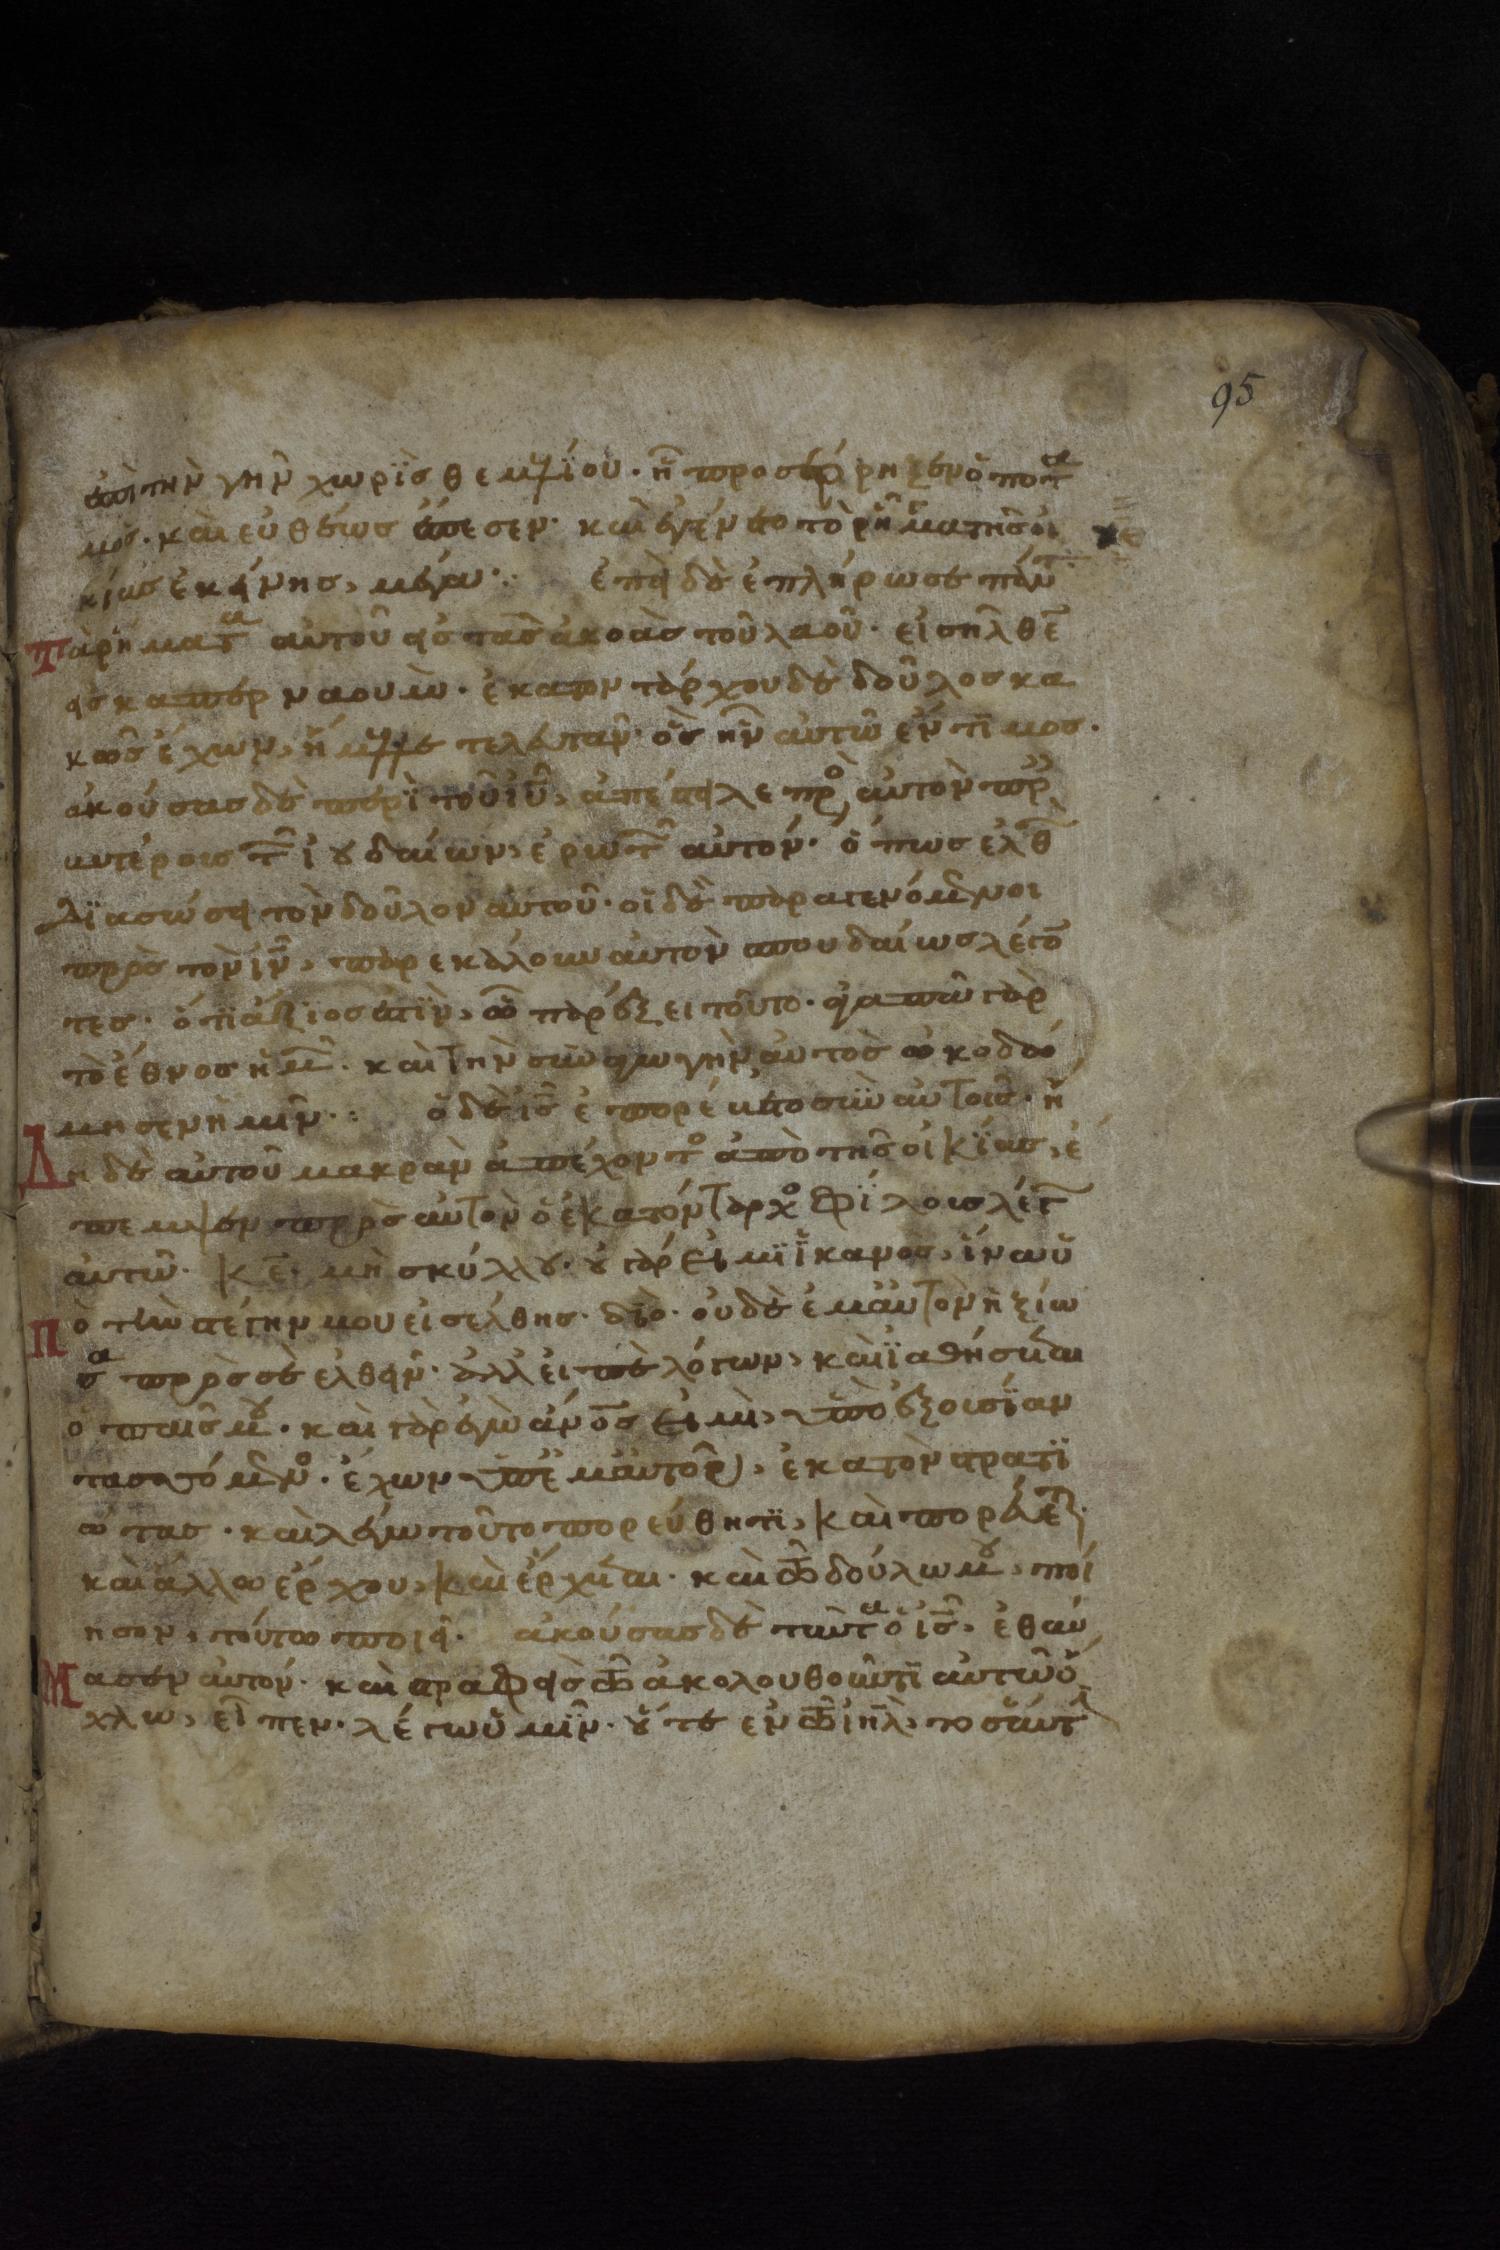 95
ἐπὶ τὴν γῆν χωρῒς θεμελΐου· ἧ προσέρρηξεν ὁ ποτα
μός· καὶ εὐθέως ἔπεσεν· καὶ ἐγένετο τὸ ρῆγμα τῆς οἰ
κίας ἐκείνης, μέγα· ἐπεὶ δὲ ἐπλήρωσε πάντ
τὰ ρήματα αὐτοῦ εἰς τὰς ἀκοὰς τοῦ λαοῦ· εἰσῆλθε
εἰς καπερναούμ· ἑκατοντάρχου δὲ δοῦλος κα
κῶς ἔχων, ἤμελλε τελευτᾶν· ὃς ἦν αὐτῶ ἔντϊμος·
ἀκούσας δὲ περῒ τοῦ ἰυ, ἀπέστειλε πρὸ αὐτὸν πρ
υτέροις τ ἰουδαίων, ἐρωτ αὐτόν· ὅπως ἐλθ
δϊασώσει τὸν δοῦλον αὐτοῦ· οἱ δὲ παραγενόμενοι
πρὸς τὸν ιν, παρεκάλουν αὐτὸν σπουδαίως λέγο
τες· ὅτϊ ἄξϊος ἐστϊν, ὧ παρέξει τοῦτο· ἀγαπᾶ γὰρ
τὸ ἔθνος ἡμ· καὶ τὴν συναγωγὴν αὐτὸς ὠκοδό
μησεν ἡμῖν· ὁ δὲ ις ἐπορεύετο σὺν αὐτοῖς· ἤ
δη δὲ αὐτοῦ μακρὰν ἀπέχοντο ἀπὸ τῆς οἰκΐας, ἔ
πεμψεν πρὸς αὐτὸν ὁ ἑκατόνταρχο φΐλοις λέγ
αὐτῶ· κε· μὴ σκύλλου· οὐ γάρ εἰμϊ ἱκανός, ἵνα ὑ
πὸ τὴν στέγην μου εἰσέλθης· διὸ· οὐδὲ ἐμαυτὸν ἠξίω
σα πρὸς σὲ ἐλθεῖν· ἀλλ εἰπὲ λόγων, καὶ ϊαθήσεται
ὁ παῖς μου· καὶ γὰρ ἐγὼ ἄνος εἰμὶ, ὑπὸ ἐξουσΐαν
τασσόμενο· ἔχων ὑπ ἐμαυτὸν, ἑκατὸν στρατϊ
ώτας· καὶ λέγω τοῦτο πορεύθητϊ, καὶ πορεύετ
καὶ ἄλλω ἔρχου, καὶ ἔρχεται· καὶ τῶ δούλω μου, ποί
ησον, τοῦτω ποιεῖ· ἀκούσας δὲ ταῦτα ὁ ις, ἐθαύ
μασεν αὐτόν· καὶ στραφεὶς τῶ ἀκολουθοῦντϊ αὐτῶ ὄ
χλω, εἶπεν· λέγω ὑμῖν· οὔτε ἐν τῶ ιηλ, τοσαύτ